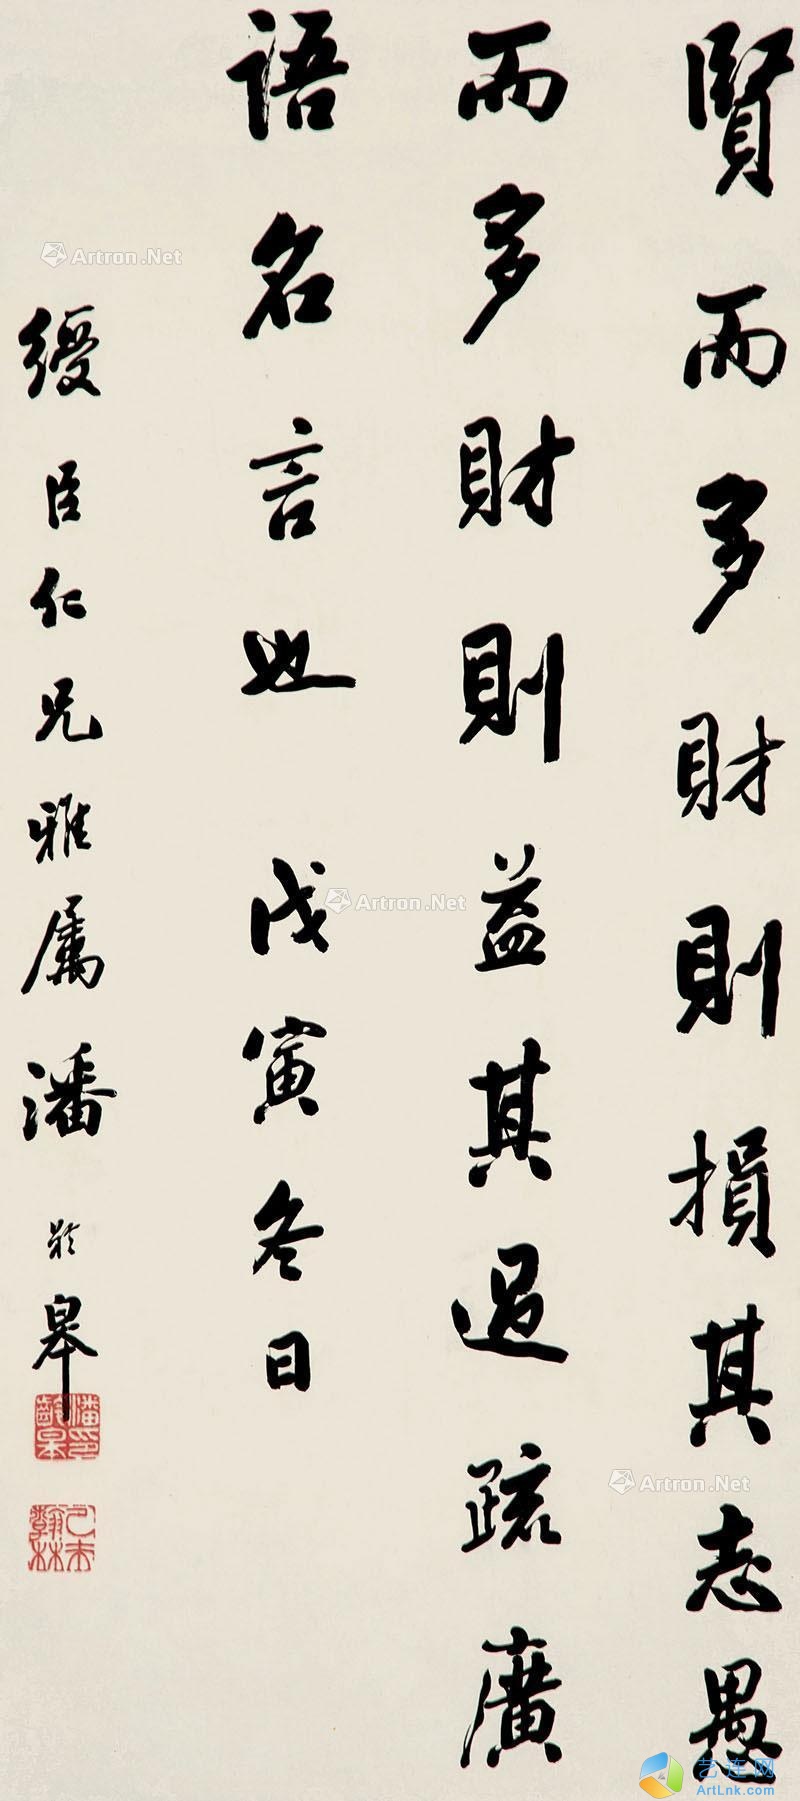 賢而多財則損其志愚
而多財則益其過疏廣
語名言也戊寅冬日
綬臣仁兄雅屬潘齡皋
潘印齡皋
乙未翰林
Artron.Net
Artron.Net
Artron.Net
艺连网
ArtLnk.com